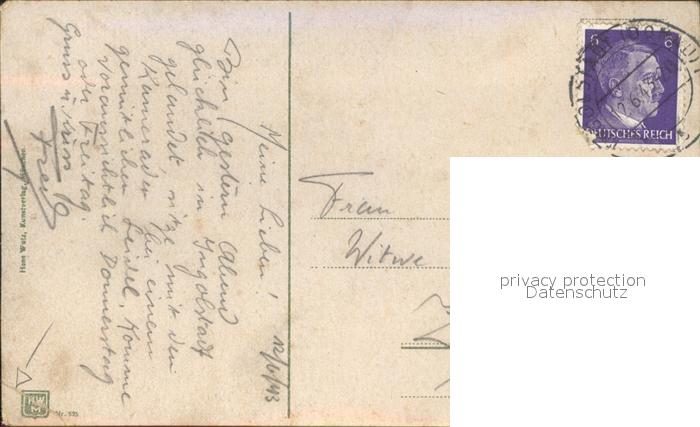 Meine Lieben! 12/6/43
Bin gestern Abend
glücklich in Ingolstadt
gelandet, sitze mit den
Kameraden bei einem
gemütlichen Seidel, komme
voraussichtlich Donnerstag
oder Freitag.
Gruss u. Kuss
Hans Wutz, Kunstverlag,
HWM
Nr. 535
6 6
DEUTSCHES REICH
Frau
Witwe
privacy protection
Datenschutz